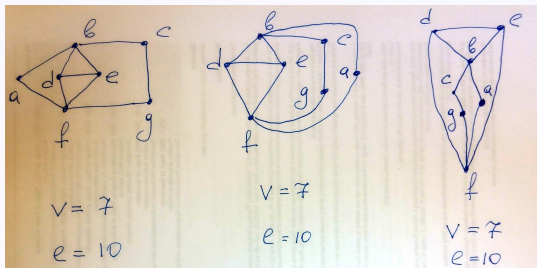 b c
d e
a
f g
v = 7
e = 10
b
c
d e a
g
f
v = 7
e = 10
d e
b
c a
g
f
v = 7
e = 10